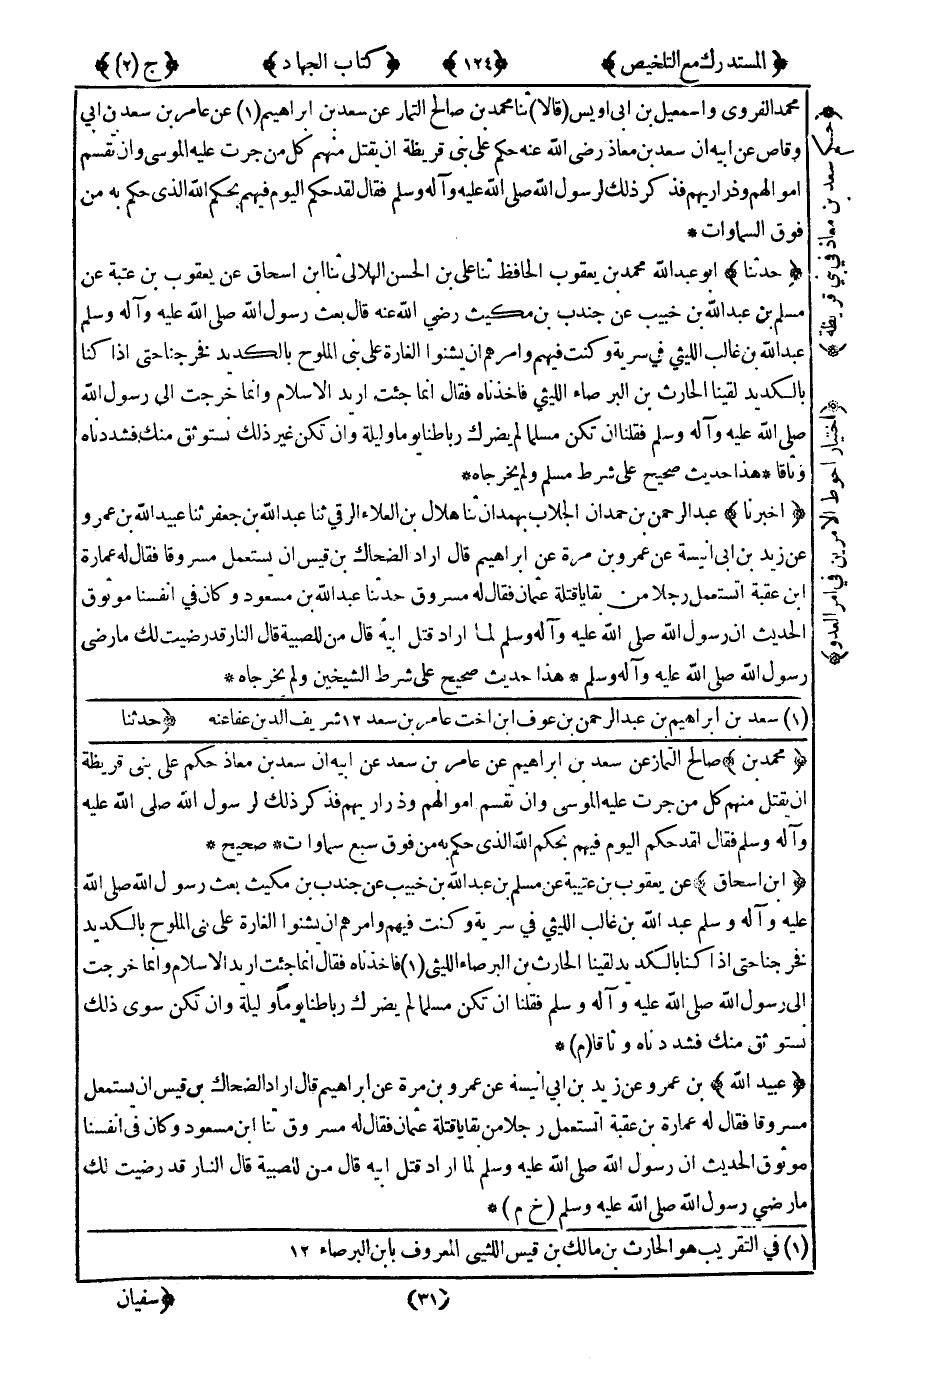 ﴿ المستدرك مع التلخيص ﴾ ﴿١٢٤﴾ ﴿ كتاب الجهاد ﴾ ﴿ ج (٢) ﴾
محمد الفروى واسمعيل بن ابى اويس (قالا) ثنا محمد بن صالح التمار عن سعد بن ابراهيم (١) عن عامر بن سعد بن ابي
وقاص عن ابيه ان سعد بن معاذ رضى الله عنه حكم على بنى قريظة ان يقتل منهم كل من جرت عليه الموسى وان تقسم
اموالهم وذراريهم فذكر ذلك لرسول الله صلى الله عليه وآله وسلم فقال لقد حكم اليوم فيهم بحكم الله الذى حكم به من
فوق السماوات *
﴿ حدثنا ﴾ ابو عبد الله محمد بن يعقوب الحافظ ثنا على بن الحسن الهلالى ثنا ابن اسحاق عن يعقوب بن عتبة عن
مسلم بن عبد الله بن خبيب عن جندب بن مكيث رضي الله عنه قال بعث رسول الله صلى الله عليه وآله وسلم
عبد الله بن غالب الليثي في سرية وكنت فيهم وامرهم ان يشنوا الغارة على بنى الملوح بالكديد فخرجنا حتى اذا كنا
بالكديد لقينا الحارث بن البرصاء الليثي فاخذناه فقال انما جئت اريد الاسلام وانما خرجت الى رسول الله
صلى الله عليه وآله وسلم فقلنا ان تكن مسلما لم يضرك رباطنا يوما وليلة وان تكن غير ذلك نستوثق منك فشددناه
وثاقا * هذا حديث صحيح على شرط مسلم ولم يخرجاه *
﴿ اخبرنا ﴾ عبد الرحمن بن حمدان الجلاب بهمدان ثنا هلال بن العلاء الرقي ثنا عبد الله بن جعفر ثنا عبيد الله بن عمرو
عن زيد بن ابى انيسة عن عمرو بن مرة عن ابراهيم قال اراد الضحاك بن قيس ان يستعمل مسروقا فقال له عمارة
ابن عقبة اتستعمل رجلا من بقايا قتلة عثمان فقال له مسروق حدثنا عبد الله بن مسعود وكان في انفسنا موثوق
الحديث ان رسول الله صلى الله عليه وآله وسلم لما اراد قتل ابيه قال من للصبية قال النار قد رضيت لك ما رضى
رسول الله صلى الله عليه وآله وسلم * هذا حديث صحيح على شرط الشيخين ولم يخرجاه *
(١) سعد بن ابراهيم بن عبد الرحمن بن عوف ابن اخت عامر بن سعد ١٢ شريف الدين عفا عنه ﴿ حدثنا
﴿ محمد بن ﴾ صالح التمار عن سعد بن ابراهيم عن عامر بن سعد عن ابيه ان سعد بن معاذ حكم على بنى قريظة
ان يقتل منهم كل من جرت عليه الموسى وان تقسم اموالهم وذراريهم فذكر ذلك لرسول الله صلى الله عليه
وآله وسلم فقال لقد حكم اليوم فيهم بحكم الله الذى حكم به من فوق سبع سماوات * صحيح *
﴿ ابن اسحاق ﴾ عن يعقوب بن عتيبة عن مسلم بن عبد الله بن خبيب عن جندب بن مكيث بعث رسول الله صلى الله
عليه وآله وسلم عبد الله بن غالب الليثي في سرية وكنت فيهم وامرهم ان يشنوا الغارة على بنى الملوح بالكديد
فخرجنا حتى اذا كنا بالكديد لقينا الحارث بن البرصاء الليثى (١) فاخذناه فقال انما جئت اريد الاسلام وانما خرجت
الى رسول الله صلى الله عليه وآله وسلم فقلنا ان تكن مسلما لم يضرك رباطنا يوما وليلة وان تكن سوى ذلك
نستوثق منك فشددناه وثاقا (م) *
﴿ عبيد الله ﴾ بن عمرو عن زيد بن ابى انيسة عن عمرو بن مرة عن ابراهيم قال اراد الضحاك بن قيس ان يستعمل
مسروقا فقال له عمارة بن عقبة اتستعمل رجلا من بقايا قتلة عثمان فقال له مسروق ثنا ابن مسعود وكان فى انفسنا
موثوق الحديث ان رسول الله صلى الله عليه وسلم لما اراد قتل ابيه قال من للصبية قال النار قد رضيت لك
ما رضي رسول الله صلى الله عليه وسلم (خ م) *
(١) في التقريب هو الحارث بن مالك بن قيس الليثى المعروف بابن البرصاء ١٢
(٣١) ﴿ سفيان
﴿ حكم سعد بن معاذ في بني قريظة ﴾
﴿ اختيار احوط الامرين في امر العدو ﴾